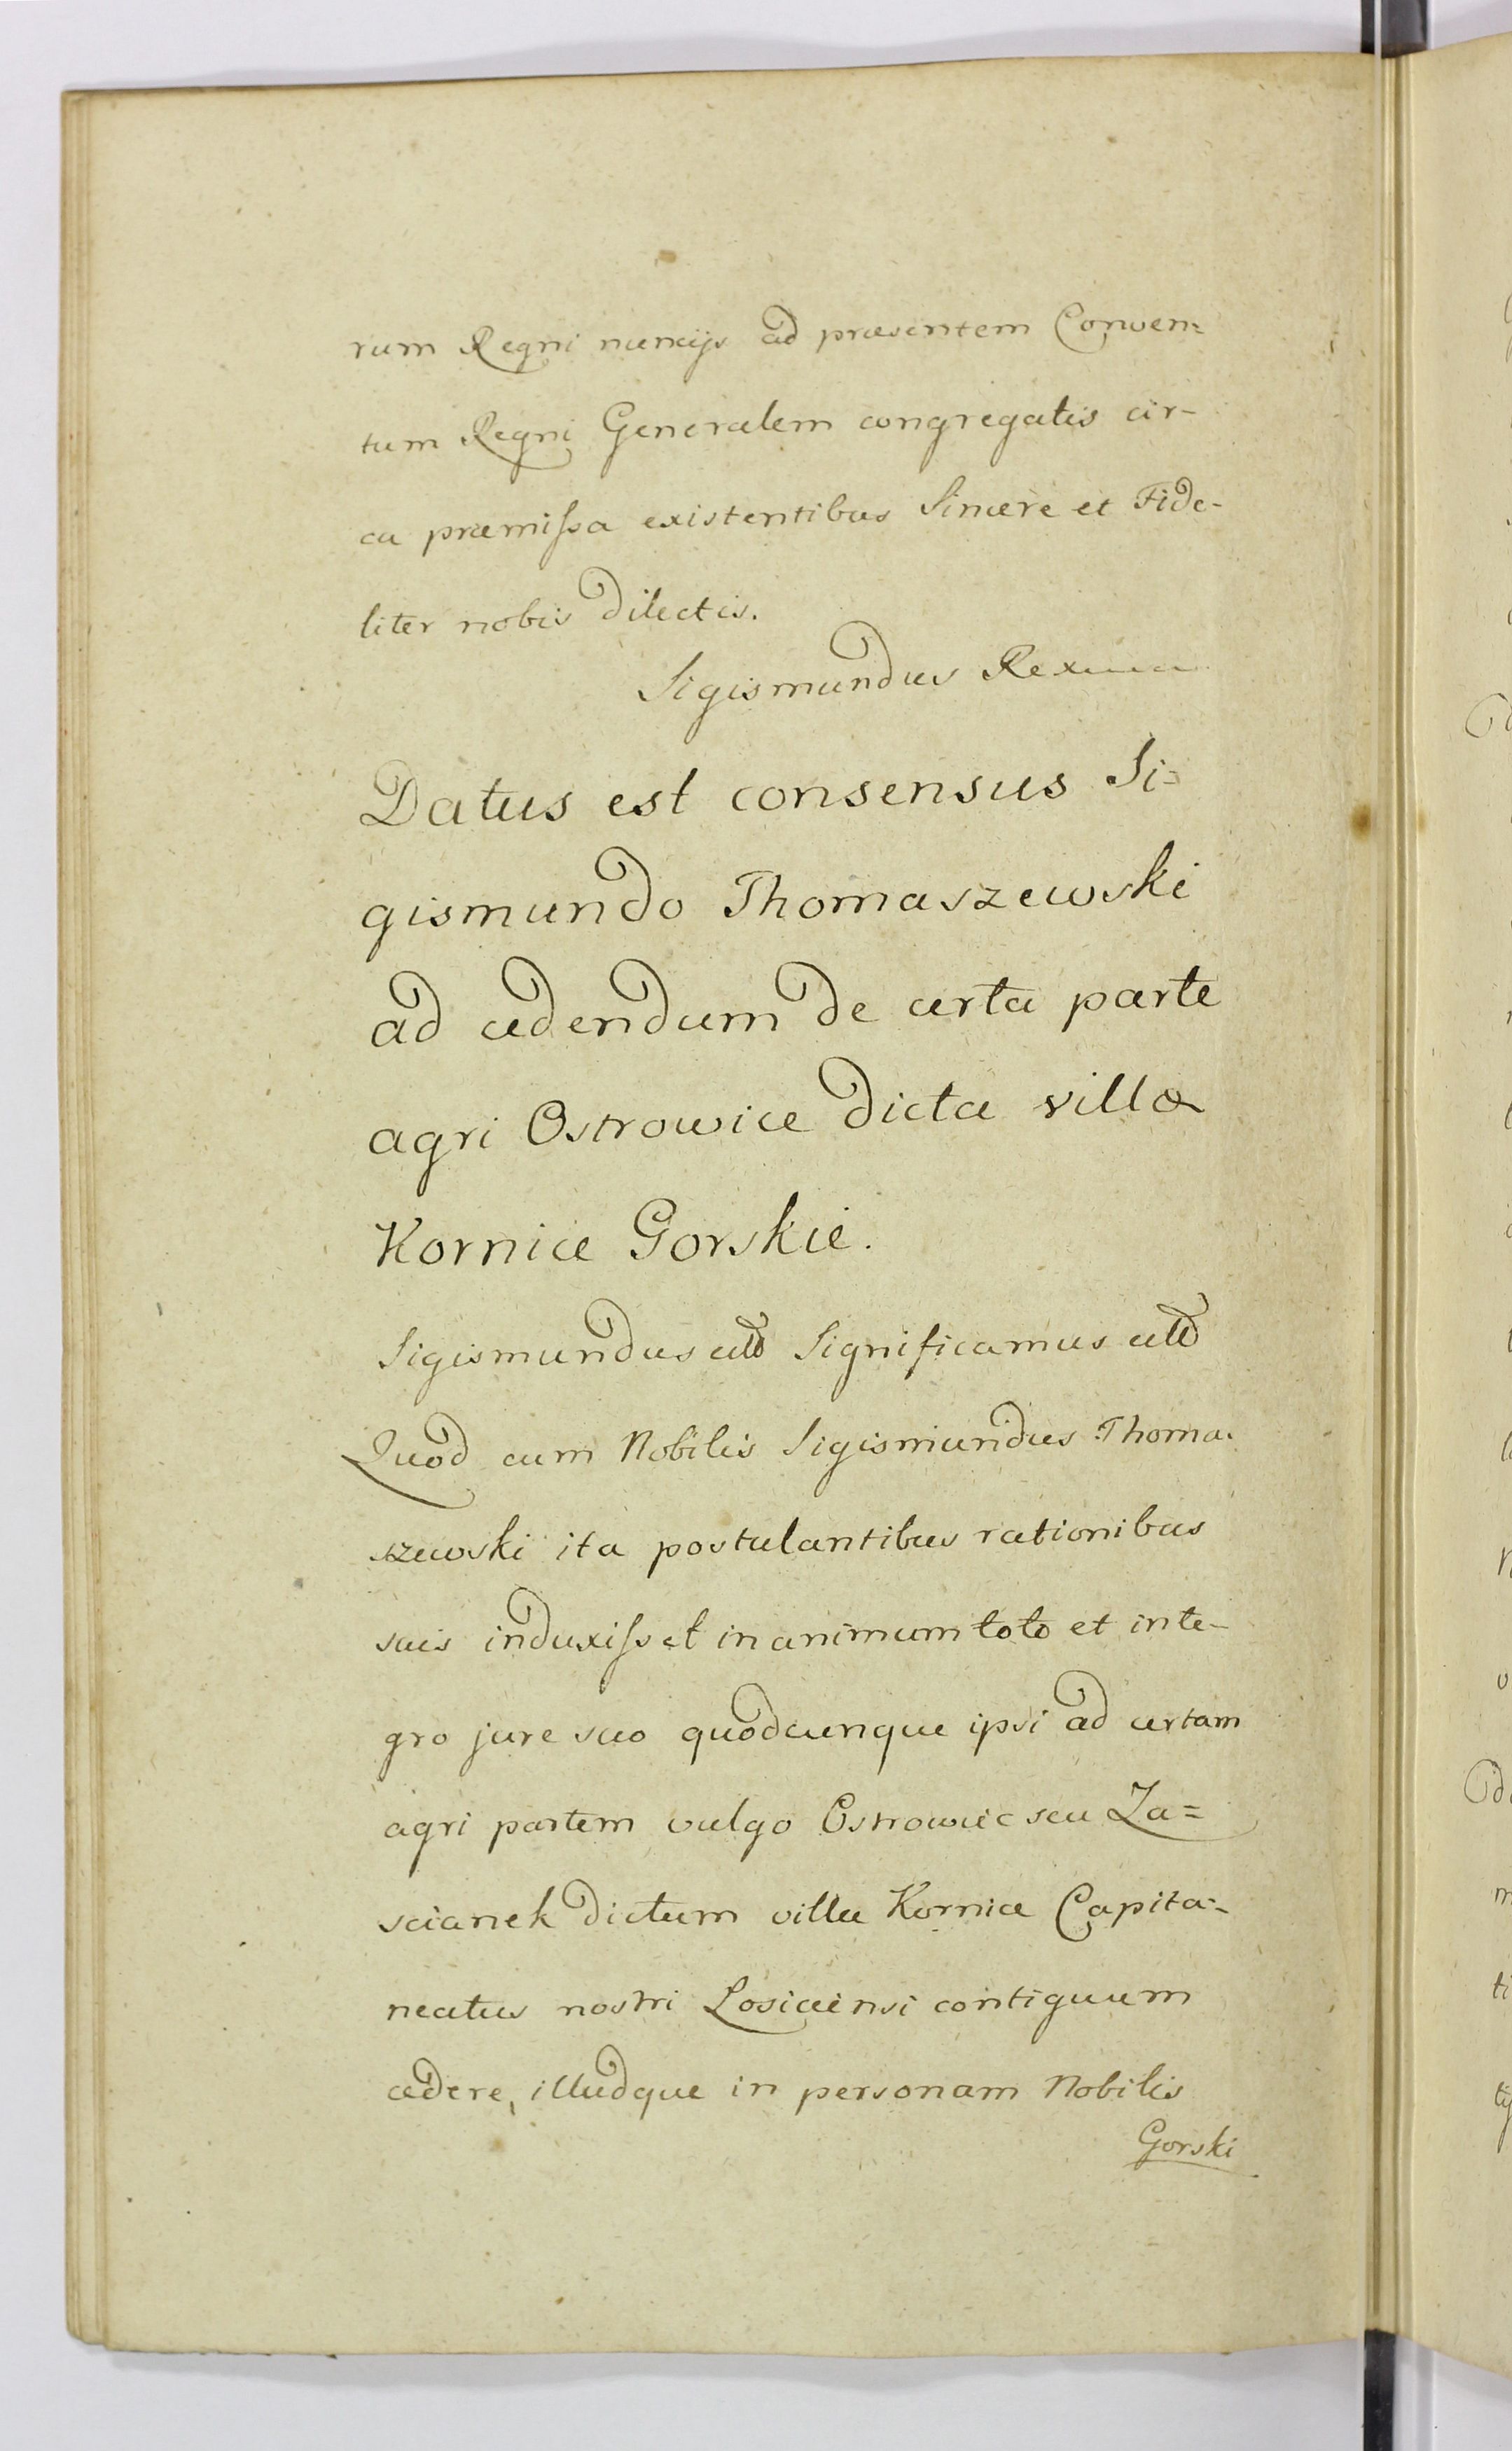 rum Regni nuncijs ad præsentem Conven=
tum Regni Generalem congregatis cir-
ca præmissa existentibus Sincere et Fide-
liter nobis dilectis.
Sigismundus Rex
Datus est consensus Si=
gismundo Thomaszewski
ad cedendum de certa parte
agri Ostrowice dicta villæ
Kornice Gorskie.
Sigismundus etc Significamus etc
Quod cum Nobilis Sigismundus Thoma-
szewski ita postulantibus rationibus
suis induxisset in animum toto et inte-
gro jure suo quodcunque ipsi ad certam
agri partem vulgo Ostrowiec seu Za=
scianek dictum villæ Kornice Capita=
neatus nostri Losicensi contiguum
cedere, illudque in personam Nobilis
Gorski